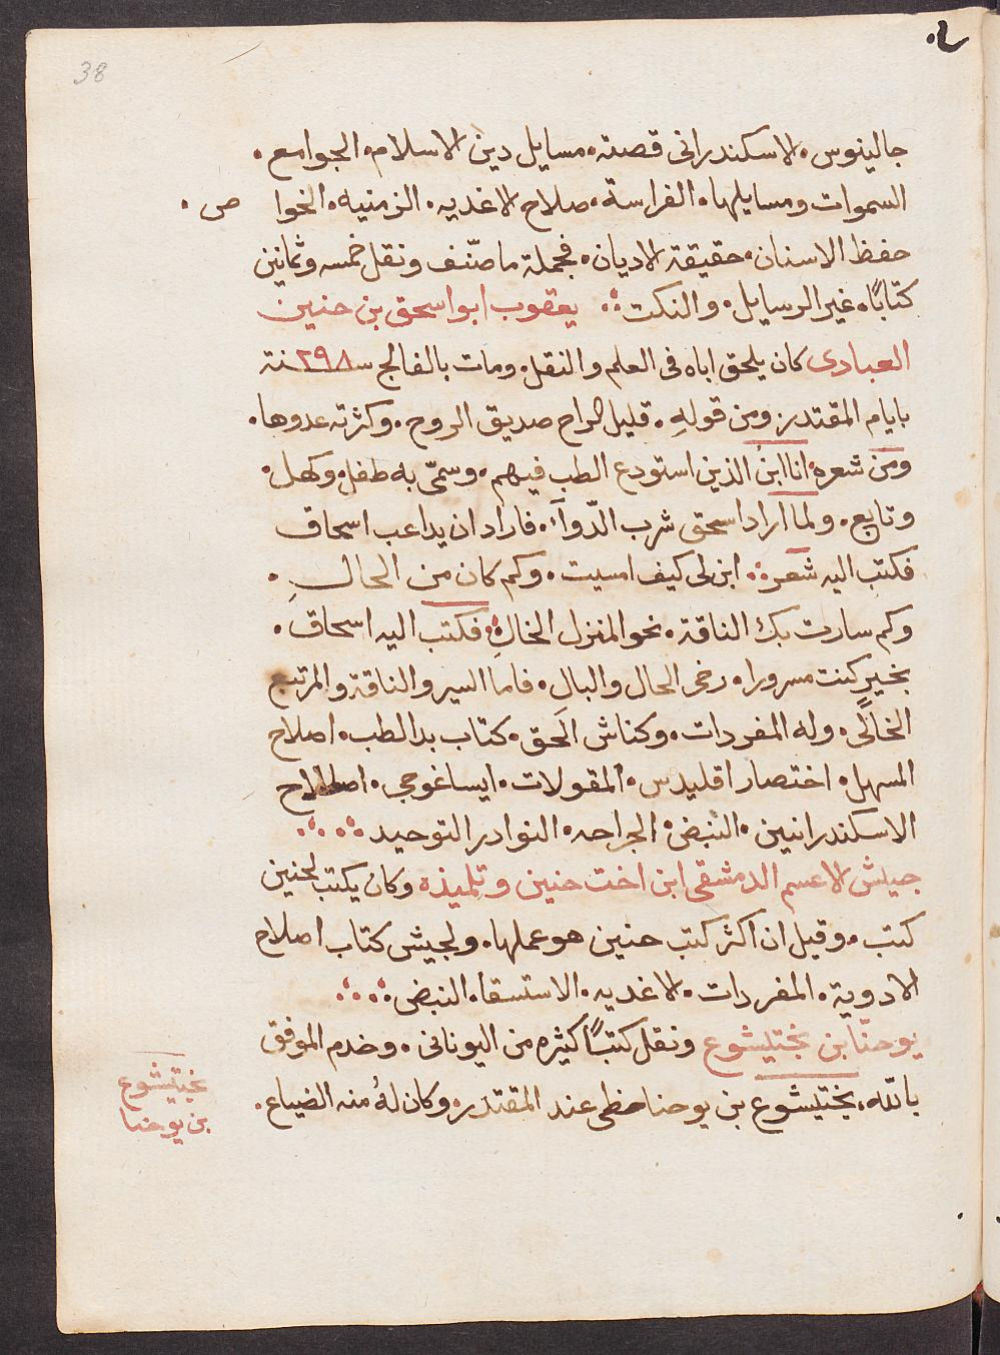 38
جالينوس. الاسكندرانى قصته. مسايل دين الاسلام. الجوامع.
السموات ومسايلها. الفراسة. صلاح الاغديه. الزمنيه. الخوا ص.
حفظ الاسنان. حقيقة الاديان. فجملة ما صنّف ونقل خمسه وثمانين
كتابًا. غير الرسايل. والنكت ∴ يعقوب ابو اسحق بن حنين
العبادى كان يلحق اباه فى العلم والنقل. ومات بالفالج سنة ٢٩٨
بايام المقتدر ومن قولهِ. قليل الراح صديق الروح. وكثرته عدوها.
ومن شعره انا ابنُ الذين استودع الطب فيهم. وسمّى به طفل وكهل.
وتابع. ولما اراد اسحق شرب الدّوآء. فاراد ان يداعب اسحاق
فكتب اليه شعر ∴ ابن لى كيف امسيت. وكم كان من الحالِ.
وكم سارت بك الناقة. نحو المنزل الخالِ ∴ فكتب اليه اسحاق.
بخيرٍ كنت مسرورا. رخى الحال والبال. فاما السير والناقة والمرتبع
الخالى. وله المفردات. وكناش الَحق. كتاب بدا الطب. اصلاح
المسهل. اختصار اقليدس. المقولات. ايساغوجى. اصطلاح
الاسكندرانيين. النبض. الجراحه. النوادر التوحيد ∴
حبيش الاعسم الدمشقى ابن اخت حنين وتلميذه وكان يكتب لحنين
كتب. وقيل ان اكثر كتب حنين هو عملها. ولحبيش كتاب اصلاح
الادوية. المفردات. الاغديه. الاستسقا. النبض ∴
يوحنّا بن بختيشوع ونقل كتبًا كثيره من اليونانى. وخدم الموفق
بالله. بختيشوع بن يوحنا حظى عند المقتدر. وكان لهُ منه الضياع.
بختيشوع
بن يوحنا